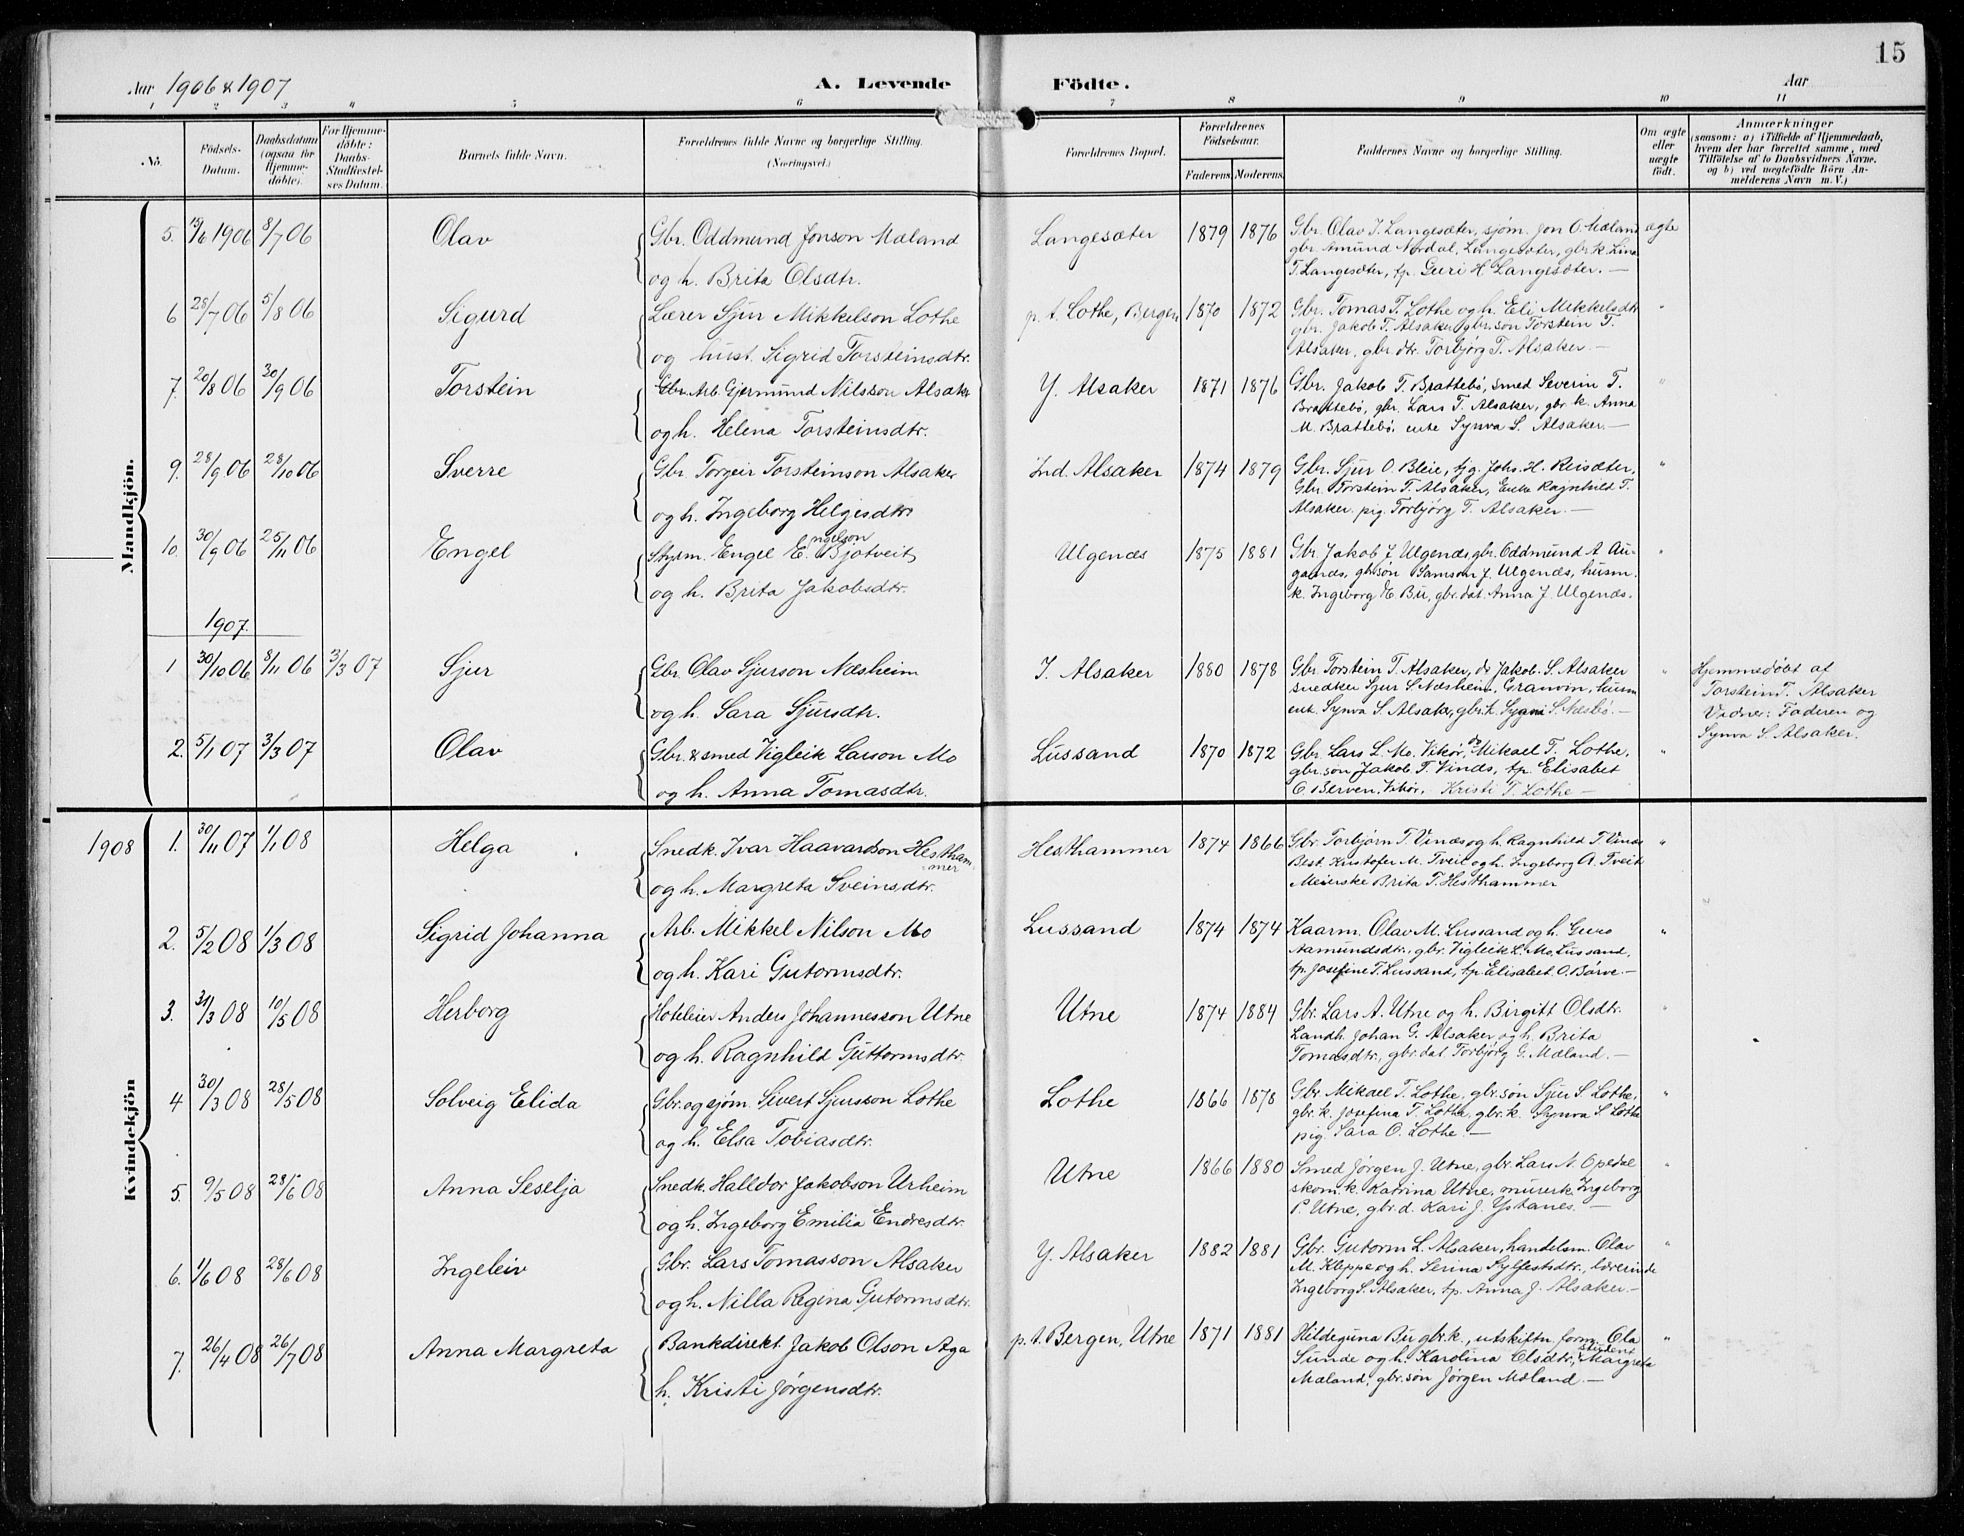 15
Aar 1906 & 1907 A. Levende Födte. Aar
1 2 3 " 5 6 7 8 9 10 11
No. Födsels-Datum. Daabsdatum (ogsaa for Hjemmedöbte). For Hjemmedöbte: Daabs-Stadfæstelses Datum. Barnets fulde Navn. Forældrenes fulde Navne og borgerlige Stilling. (Næringsvei.) Forældrenes Bopæl. Forældrenes Födselsaar. Faderens. Moderens. Faddernes Navne og borgerlige Stilling. Om ægte eller uægte födt. Anmærkninger (saasom: a) i Tilfælde af Hjemmedaab, hvem der har forrettet samme, med Tilföielse af to Daabsvidners Navne, og b) ved uægtefödte Börn Anmelderens Navn m. V.)
Mandkjön.
5. 15/6 1906 8/7 06 Olav Gbr. Oddmund Jonson Mæland Langesæter 1879 1876 Gbr. Olav T. Langesæter, sjøm. Jon O. Mæland ægte
gbr. Amund Nordal, Langesæter, gbr.k. Lina
og h. Brita Olsdtr. T. Langesæter, tp. Guri H Langesæter. —
6 28/7 06 5/8 06 Sigurd Lærer Sjur Mikkelson Lothe p. t. Lothe, Bergen 1870 1872 Gbr. Tomas T. Lothe og h. Eli Mikkelsdtr "
gbr. Jakob T. Alsaker, gbr.son Torstein T.
og hust. Sigrid Torsteinsdtr. Alsaker, gbr. dtr. Torbjørg T. Alsaker. —
7. 20/8 06 30/9 06 Torstein Gbr. Arb. Gjermund Nilsson Alsaker Y. Alsaker 1871 1876 Gbr. Jakob T. Brattebø, smed Severin T. "
Brattebø, gbr. Lars T. Alsaker, gbr. k. Anna
og h. Helena Torsteinsdtr. M. Brattebø, enke Synva S. Alsaker. —
9. 28/9 06 28/10 06 Sverre Gbr. Torgeir Torsteinson Alsaker Ind. Alsaker 1874 1879 Gbr. Sjur O. Bleie, tjg. Johs. H. Reisæter, "
Gbr. Torstein T. Alsaker, Enke Ragnhild T.
og h. Ingeborg Helgesdtr. Alsaker. pig. Torbjørg T. Alsaker. —
10. 30/9 06 25/11 06 Engel Styrm. Engel Engelson Bjotveit Ulgenæs 1875 1881 Gbr. Jakob J. Ulgenæs, gbr. Oddmund A Au- "
ganæs, gbr.søn Samson J. Ulgenæs, husm.
og h. Brita Jakobsdtr. k. Ingeborg E. Bu, gbr.dat. Anna J. Ulgenæs.
1907.
1 30/10 06 8/11 06 3/3 07 Sjur Gbr. Olav Sjurson Næsheim I. Alsaker 1880 1878 Gbr. Torstein T. Alsaker, do Jakob. S. Alsaker " Hjemmedøbt af
snedker Sjur S. Næsheim, Granvin, husm Torstein T. Alsaker
og h. Sara Sjursdtr. enk. Synva S. Alsaker, gbr.k. S. Næsbø. — Vidner: Faderen og
Synva S. Alsaker.
2. 5/1 07 3/3 07 Olav Gbr. & smed Vigleik Larson Mo Lussand 1870 1872 Gbr. Lars L. Mo, Vikør, do Mikael T. Lothe, "
gbr.søn Jakob T. Vinæs, tp. Elisabet
og h. Anna Tomasdtr. O. Berven, Vikør, Kristi T. Lothe —
Kvindekjön
1908 1. 30/11 07 1/1 08 Helga Snedk. Ivar Haavardson Hestham- Hesthammer 1874 1866 Gbr. Torbjørn T. Vinæs og h. Ragnhild T. Vinæs "
mer Best. Kristofer M. Tveit og h. Ingeborg A. Tveit
og h. Margreta Sveinsdtr. Meierske Brita T. Hesthammer
2. 5/2 08 1/3 08 Sigrid Johanna Arb. Mikkel Nilson Mo Lussand 1874 1874 Kaarm. Olav M. Lussand og h. Guro "
Aamundsdtr., gbr. Vigleik L. Mo, Lussand,
og h. Kari Gutormsdtr. tp. Josefine T. Lussand, tp Elisabet O. Børve. —
3. 31/3 08 10/5 08 Herborg Hoteleier Anders Johannesson Utne Utne 1874 1884 Gbr. Lars A. Utne og h. Birgitt Olsdtr. "
Landh. Johan G. Alsaker og h. Brita
og h. Ragnhild Guttormsdtr. Tomasdtr., gbr. dat. Torbjørg G. Mæland. —
4 30/3 08 28/5 08 Solveig Elida Gbr. og sjøm. Sivert Sjursson Lothe Lothe 1866 1878 Gbr. Mikael T. Lothe, gbr.søn Sjur S. Lothe, "
gbr. k. Josefina T. Lothe, gbr. k. Synva S. Lothe
og h. Elsa Tobiasdtr. pig. Sara O. Lothe. —
5. 9/5 08 28/6 08 Anna Seselja Snedk. Halldor Jakobson Urheim Utne 1866 1880 Smed Jørgen J. Utne, gbr. Lars N. Opedal "
skom. k. Katrina Utne, murerk. Ingeborg
og h. Ingeborg Emilia Endresdtr. P. Utne, gbr. d. Kari J. Ystanes. —
6. 1/6 08 28/6 08 Ingeleiv Gbr. Lars Tomasson Alsaker Y. Alsaker 1882 1881 Gbr. Gutorm L. Alsaker, handelsm. Olav "
M. Kleppe og h. Serina Sylfestdtr., lærerinde
og h. Nilla Regina Gutormsdtr. Ingeborg S. Alsaker, tp. Anna J. Alsaker. —
7. 26/4 08 26/7 08 Anna Margreta Bankdirekt. Jakob Olson Aga p. t. Bergen, Utne 1871 1881 Hildeguna Bu gbr.k., utskiftn. form. Ola "
Sunde og h. Karolina Olsdtr., student Margreta
h. Kristi Jørgensdtr. Mæland, gbr.søn Jørgen Mæland. —